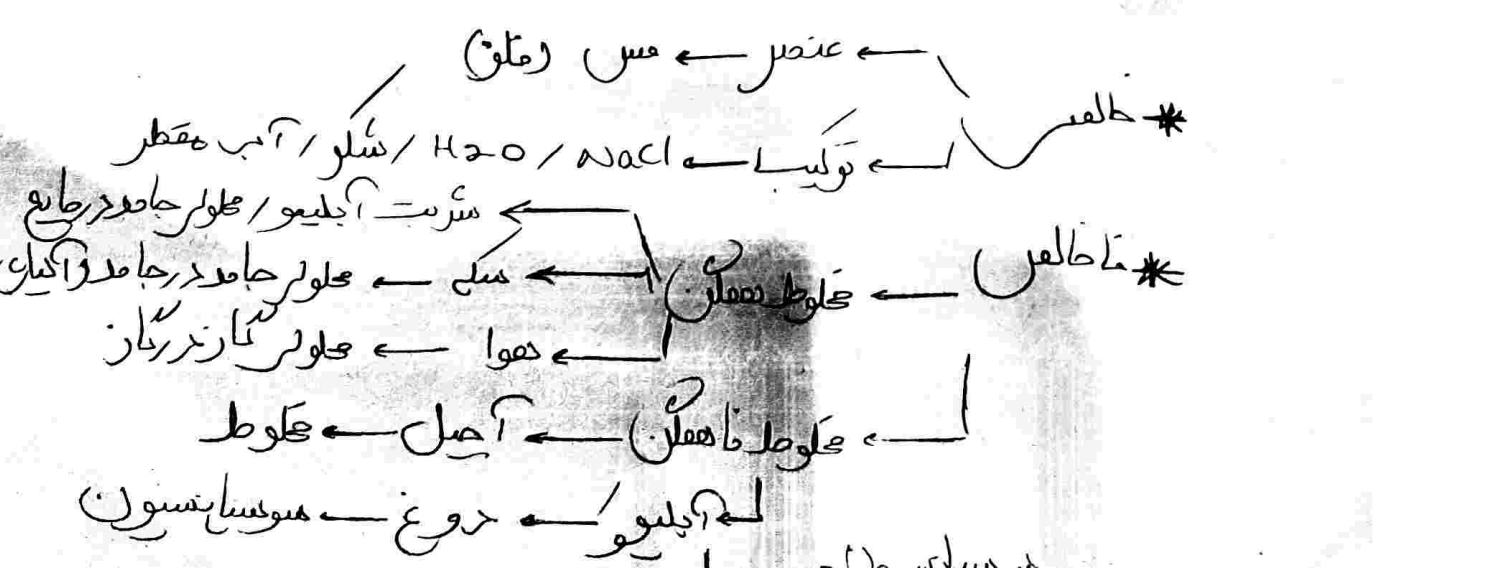 * خالص ← عنصر ← مس (فلز)
← ترکیب ← NaCl / H2O / شکر / آب مقطر
* ناخالص ← مخلوط همگن ← شربت آبلیمو / محلول جامد در مایع
← سکه ← محلول جامد در جامد
← هوا ← محلول گاز در گاز
← مخلوط ناهمگن ← آجیل ← مخلوط
← آبلیمو ← دوغ ← سوسپانسیون